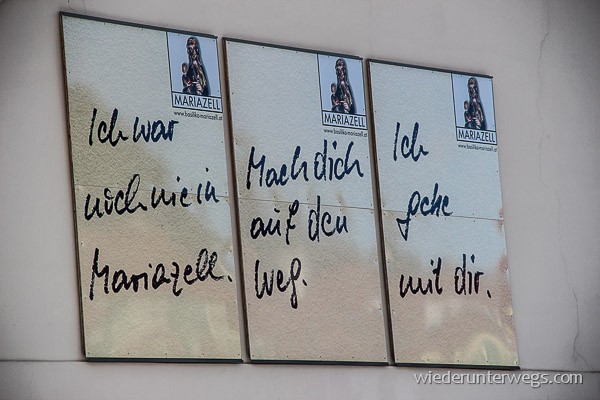 MARIAZELL
www.basilika-mariazell.at
Ich war
noch nie in
Mariazell.
MARIAZELL
www.basilika-mariazell.at
Mach dich
auf den
Weg.
MARIAZELL
www.basilika-mariazell.at
Ich
gehe
mit dir.
wiederunterwegs.com